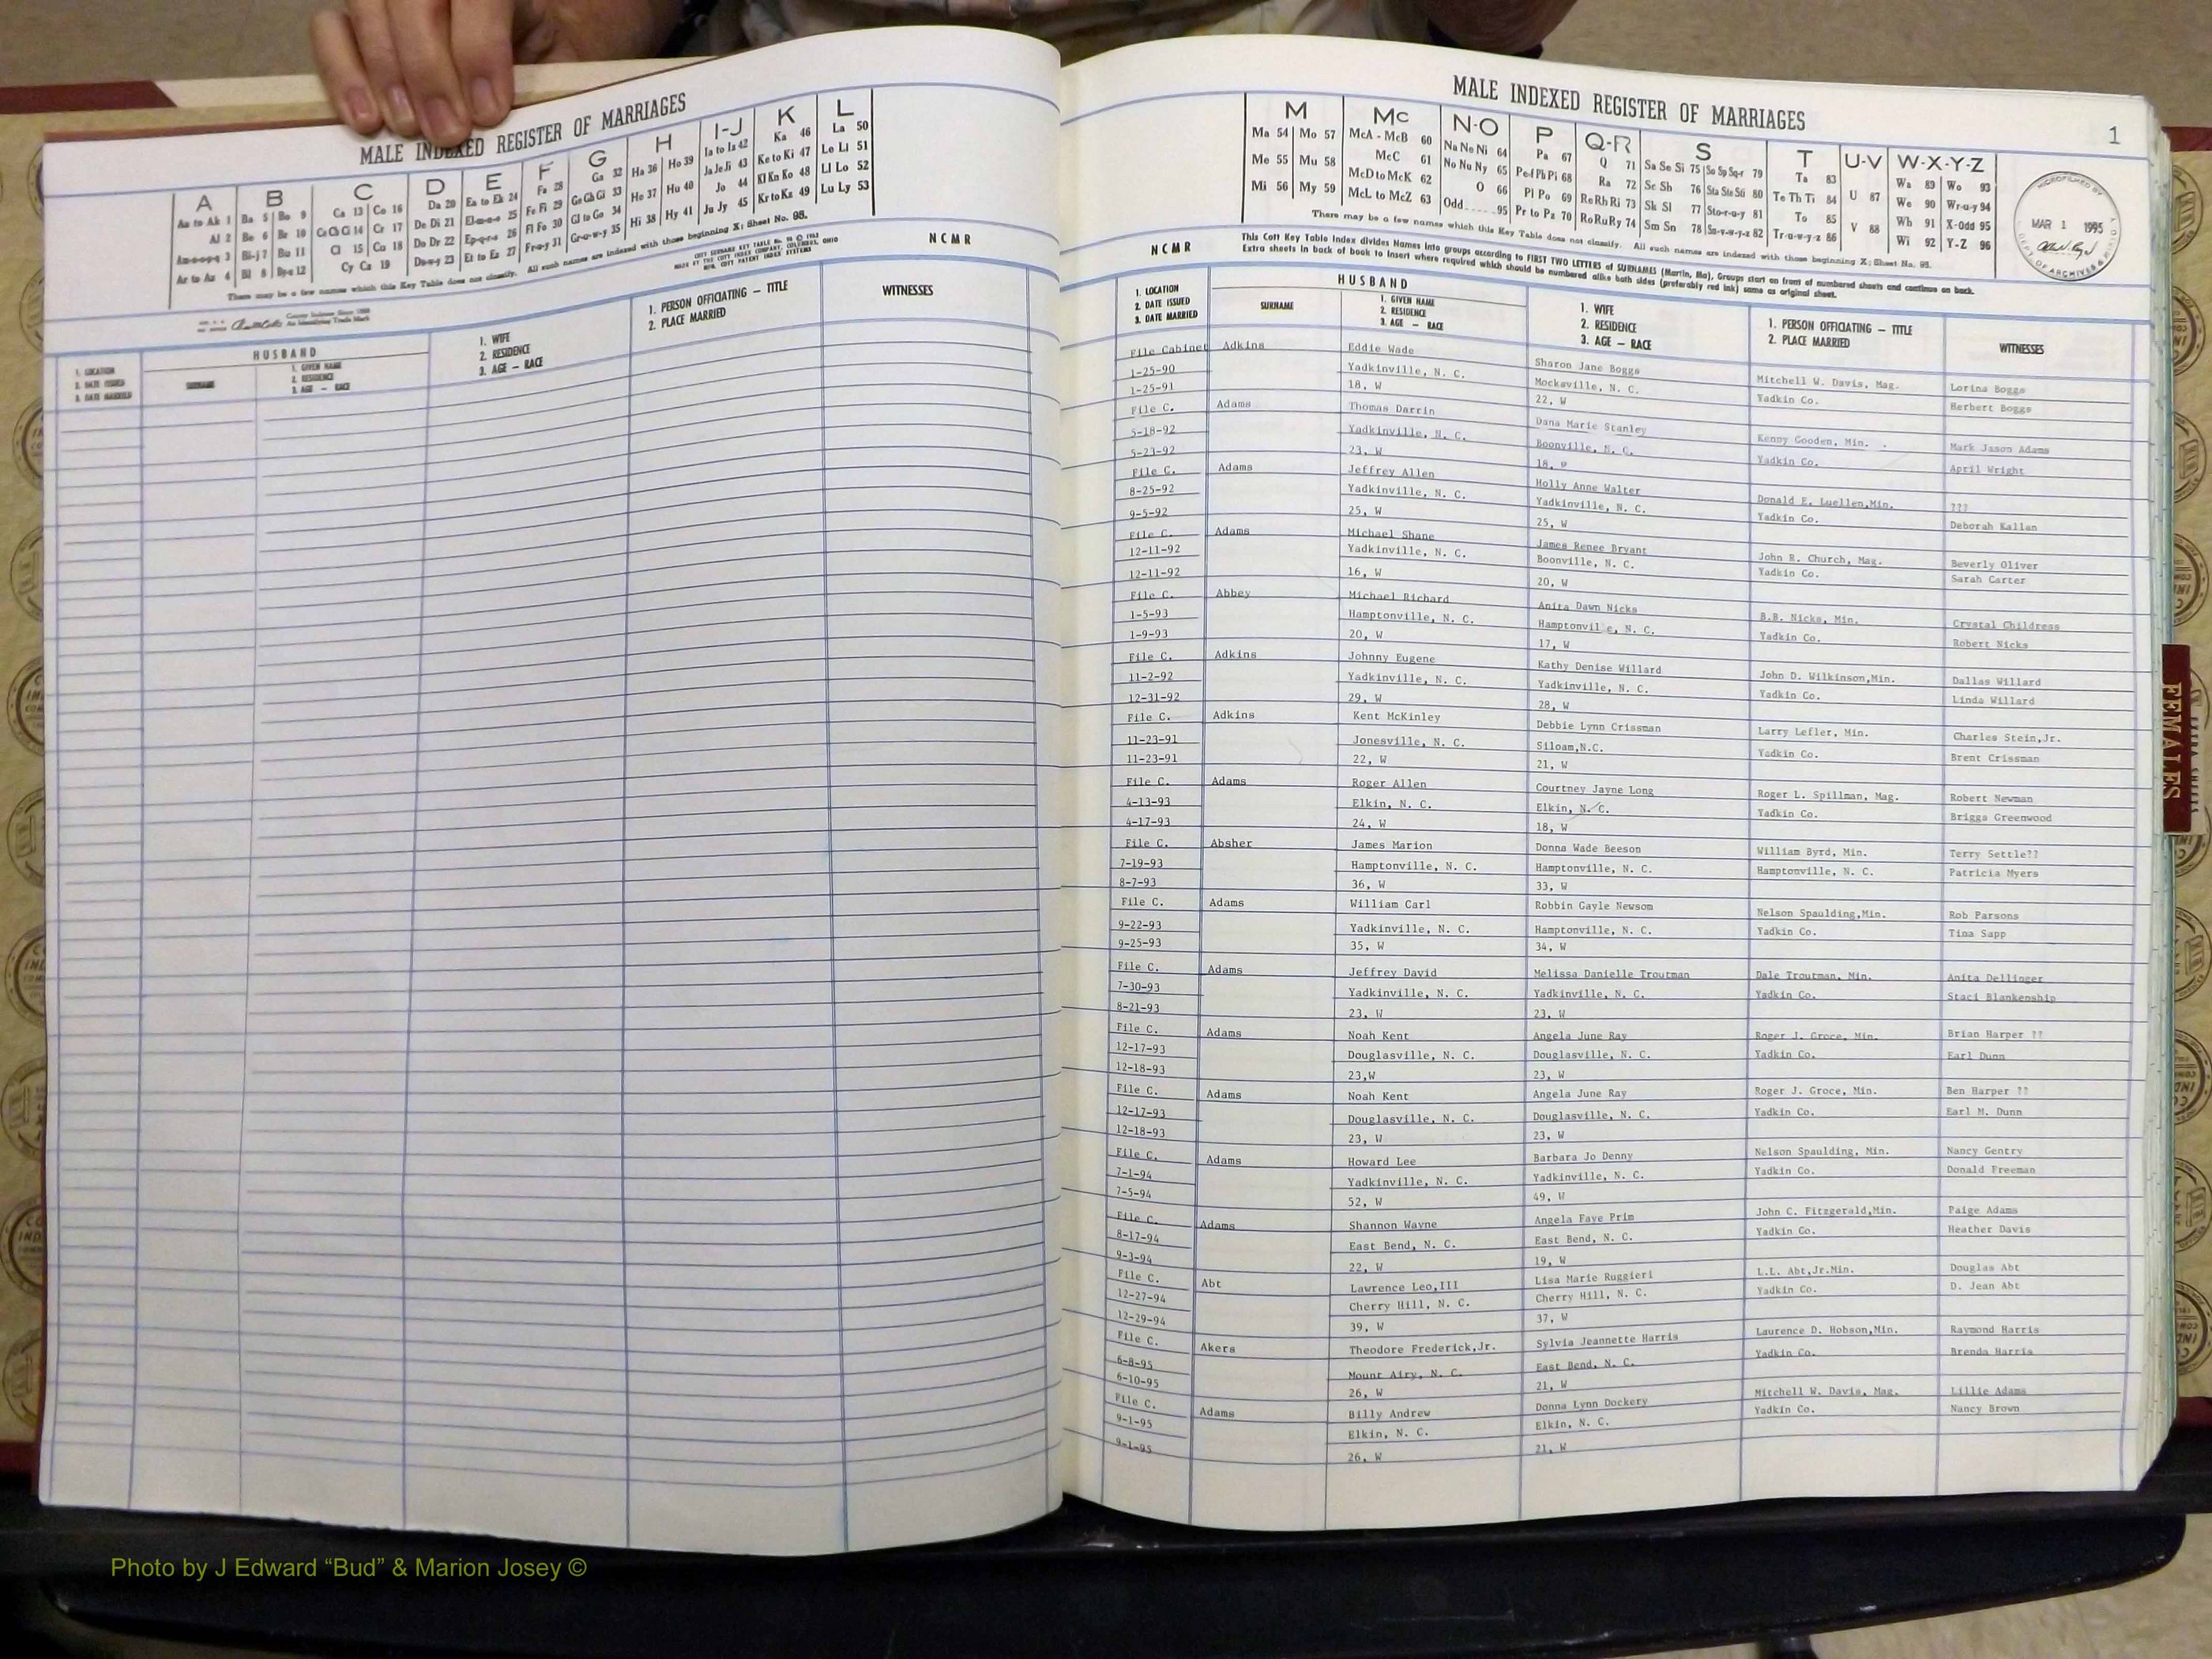 MALE INDEXED REGISTER OF MARRIAGES
A B C D E F G H I-J K L
Aa to Ak 1 Ba 5 Bo 9 Ca 13 Co 16 Da 20 Ea to Ek 24 Fa 28 Ga 32 Ha 36 Ho 39 Ia to Iz 42 Ka 46 La 50
Al 2 Be 6 Br 10 Ce Ch Ci 14 Cr 17 De Di 21 El-m-n-o 25 Fe Fi 29 Ge Gh Gi 33 He 37 Hu 40 Ja Je Ji 43 Ke to Ki 47 Le Li 51
Am-n-o-p-q 3 Bi-j 7 Bu 11 Cl 15 Cu 18 Do Dr 22 Ep-q-r-s 26 Fl Fo 30 Gl to Go 34 Hi 38 Hy 41 Jo 44 Kl Kn Ko 48 Ll Lo 52
Ar to Az 4 Bl 8 By-z 12 Cy Cz 19 Du-w-y 23 Et to Ez 27 Fr-u-y 31 Gr-u-w-y 35 Ju Jy 45 Kr to Kz 49 Lu Ly 53
There may be a few names which this Key Table does not classify. All such names are indexed with those beginning X; Sheet No. 95.
NCMR
HUSBAND
1. LOCATION
2. DATE ISSUED
3. DATE MARRIED
SURNAME
1. GIVEN NAME
2. RESIDENCE
3. AGE — RACE
1. WIFE
2. RESIDENCE
3. AGE — RACE
1. PERSON OFFICIATING — TITLE
2. PLACE MARRIED
WITNESSES
MALE INDEXED REGISTER OF MARRIAGES
1
M Mc N-O P Q-R S T U-V W-X-Y-Z
Ma 54 Mo 57 McA - McB 60 Na Ne Ni 64 Pa 67 Q 71 Sa Se Si 75 So Sp Sq-r 79 Ta 83 U 87 Wa 89 Wo 93
Me 55 Mu 58 McC 61 No Nu Ny 65 Pe-f Ph Pi 68 Ra 72 Sc Sh 76 Sta Ste Sti 80 Te Th Ti 84 V 88 We 90 Wr-u-y 94
Mi 56 My 59 McD to McK 62 O 66 Pl Po 69 Re Rh Ri 73 Sk Sl 77 Sto-r-u-y 81 To 85 Wh 91 X-Odd 95
McL to McZ 63 Odd 95 Pr to Pz 70 Ro Ru Ry 74 Sm Sn 78 Su-v-w-y-z 82 Tr-u-w-y-z 86 Wi 92 Y-Z 96
There may be a few names which this Key Table does not classify. All such names are indexed with those beginning X; Sheet No. 95.
MICROFILMED BY
MAR 1 1995
DEPT. OF ARCHIVES &
NCMR
This Cott Key Table Index divides Names into groups according to FIRST TWO LETTERS of SURNAMES (Martin, Ma), Groups start on front of numbered sheets and continue on back.
Extra sheets in back of book to insert where required which should be numbered alike both sides (preferably red ink) same as original sheet.
HUSBAND
1. LOCATION
2. DATE ISSUED
3. DATE MARRIED
SURNAME
1. GIVEN NAME
2. RESIDENCE
3. AGE — RACE
1. WIFE
2. RESIDENCE
3. AGE — RACE
1. PERSON OFFICIATING — TITLE
2. PLACE MARRIED
WITNESSES
File Cabinet Adkins Eddie Wade Sharon Jane Boggs Mitchell W. Davis, Mag. Lorina Boggs
1-25-90 Yadkinville, N. C. Mocksville, N. C. Yadkin Co. Herbert Boggs
1-25-91 18, W 22, W
File C. Adams Thomas Darrin Dana Marie Stanley Kenny Gooden, Min. Mark Jason Adams
5-18-92 Yadkinville, N. C. Boonville, N. C. Yadkin Co. April Wright
5-23-92 23, W 18, W
File C. Adams Jeffrey Allen Holly Anne Walter Donald E. Luellen,Min. ???
8-25-92 Yadkinville, N. C. Yadkinville, N. C. Yadkin Co. Deborah Kallan
9-5-92 25, W 25, W
File C. Adams Michael Shane James Renee Bryant John B. Church, Mag. Beverly Oliver
12-11-92 Yadkinville, N. C. Boonville, N. C. Yadkin Co. Sarah Carter
12-11-92 16, W 20, W
File C. Abbey Michael Richard Anita Dawn Nicks B.B. Nicks, Min. Crystal Childress
1-5-93 Hamptonville, N. C. Hamptonvil e, N. C. Yadkin Co. Robert Nicks
1-9-93 20, W 17, W
File C. Adkins Johnny Eugene Kathy Denise Willard John D. Wilkinson,Min. Dallas Willard
11-2-92 Yadkinville, N. C. Yadkinville, N. C. Yadkin Co. Linda Willard
12-31-92 29, W 28, W
File C. Adkins Kent McKinley Debbie Lynn Crissman Larry Lefler, Min. Charles Stein,Jr.
11-23-91 Jonesville, N. C. Siloam,N.C. Yadkin Co. Brent Crissman
11-23-91 22, W 21, W
File C. Adams Roger Allen Courtney Jayne Long Roger L. Spillman, Mag. Robert Newman
4-13-93 Elkin, N. C. Elkin, N. C. Yadkin Co. Briggs Greenwood
4-17-93 24, W 18, W
File C. Absher James Marion Donna Wade Beeson William Byrd, Min. Terry Settle??
7-19-93 Hamptonville, N. C. Hamptonville, N. C. Hamptonville, N. C. Patricia Myers
8-7-93 36, W 33, W
File C. Adams William Carl Robbin Gayle Newsom Nelson Spaulding,Min. Rob Parsons
9-22-93 Yadkinville, N. C. Hamptonville, N. C. Yadkin Co. Tina Sapp
9-25-93 35, W 34, W
File C. Adams Jeffrey David Melissa Danielle Troutman Dale Troutman, Min. Anita Dellinger
7-30-93 Yadkinville, N. C. Yadkinville, N. C. Yadkin Co. Staci Blankenship
8-21-93 23, W 23, W
File C. Adams Noah Kent Angela June Ray Roger J. Groce, Min. Brian Harper ??
12-17-93 Douglasville, N. C. Douglasville, N. C. Yadkin Co. Earl Dunn
12-18-93 23,W 23, W
File C. Adams Noah Kent Angela June Ray Roger J. Groce, Min. Ben Harper ??
12-17-93 Douglasville, N. C. Douglasville, N. C. Yadkin Co. Earl M. Dunn
12-18-93 23, W 23, W
File C. Adams Howard Lee Barbara Jo Denny Nelson Spaulding, Min. Nancy Gentry
7-1-94 Yadkinville, N. C. Yadkinville, N. C. Yadkin Co. Donald Freeman
7-5-94 52, W 49, W
File C. Adams Shannon Wayne Angela Faye Prim John C. Fitzgerald,Min. Paige Adams
8-17-94 East Bend, N. C. East Bend, N. C. Yadkin Co. Heather Davis
9-3-94 22, W 19, W
File C. Abt Lawrence Leo,III Lisa Marie Ruggieri L.L. Abt,Jr.Min. Douglas Abt
12-27-94 Cherry Hill, N. C. Cherry Hill, N. C. Yadkin Co. D. Jean Abt
12-29-94 39, W 37, W
File C. Akers Theodore Frederick,Jr. Sylvia Jeannette Harris Laurence D. Hobson,Min. Raymond Harris
6-8-95 Mount Airy, N. C. East Bend, N. C. Yadkin Co. Brenda Harris
6-10-95 26, W 21, W
File C. Adams Billy Andrew Donna Lynn Dockery Mitchell W. Davis, Mag. Lillie Adams
9-1-95 Elkin, N. C. Elkin, N. C. Yadkin Co. Nancy Brown
9-1-95 26, W 21, W
FEMALES
Photo by J Edward “Bud” & Marion Josey ©